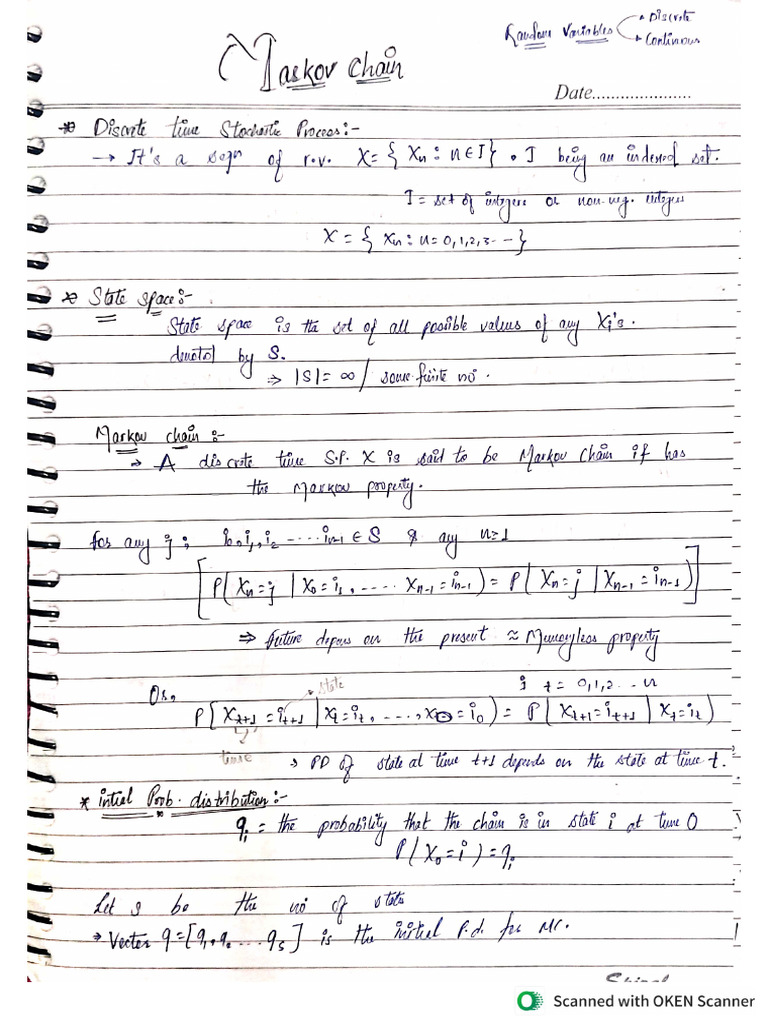 Random Variables → Discrete
→ Continuous
Markov Chain
Date.....................
* Discrete time Stochastic Process:-
→ It's a seqn of r.v. X = { Xn : n ∈ I } . I being an indexed set.
I = set of integers or non-neg. integers
X = { Xn : n = 0,1,2,3--- }
* State space:-
State space is the set of all possible values of any Xi's.
denoted by S.
⇒ |S| = ∞ / some finite no.
Markov chain :-
→ A discrete time S.P. X is said to be Markov Chain if has
the Markov property.
for any j ; i0, i1, i2 -----in-1 ∈ S & any n≥1
[ P( Xn = j | X0 = i0 , ---- Xn-1 = in-1 ) = P( Xn = j | Xn-1 = in-1 ) ]
⇒ future depens on the present ≈ Memoryless property
Or, state ; t = 0,1,2 .. n
P( Xt+1 = it+1 | Xt = it , ...., X0 = i0 ) = P( Xt+1 = it+1 | Xt = it )
time
→ PD of state at time t+1 depends on the state at time t.
* intial Prob. distribution :-
qi = the probability that the chain is in state i at time 0
P( X0 = i ) = qi
Let s be the no of state
→ Vector q = [ q1, q2 ... qs ] is the initial P.d. for MC.
Scanned with OKEN Scanner